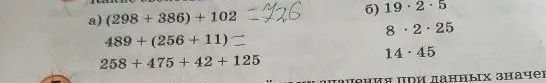 а) (298 + 386) + 102 =726
489 + (256 + 11) =
258 + 475 + 42 + 125
б) 19 · 2 · 5
8 · 2 · 25
14 · 45
значения при данных значен